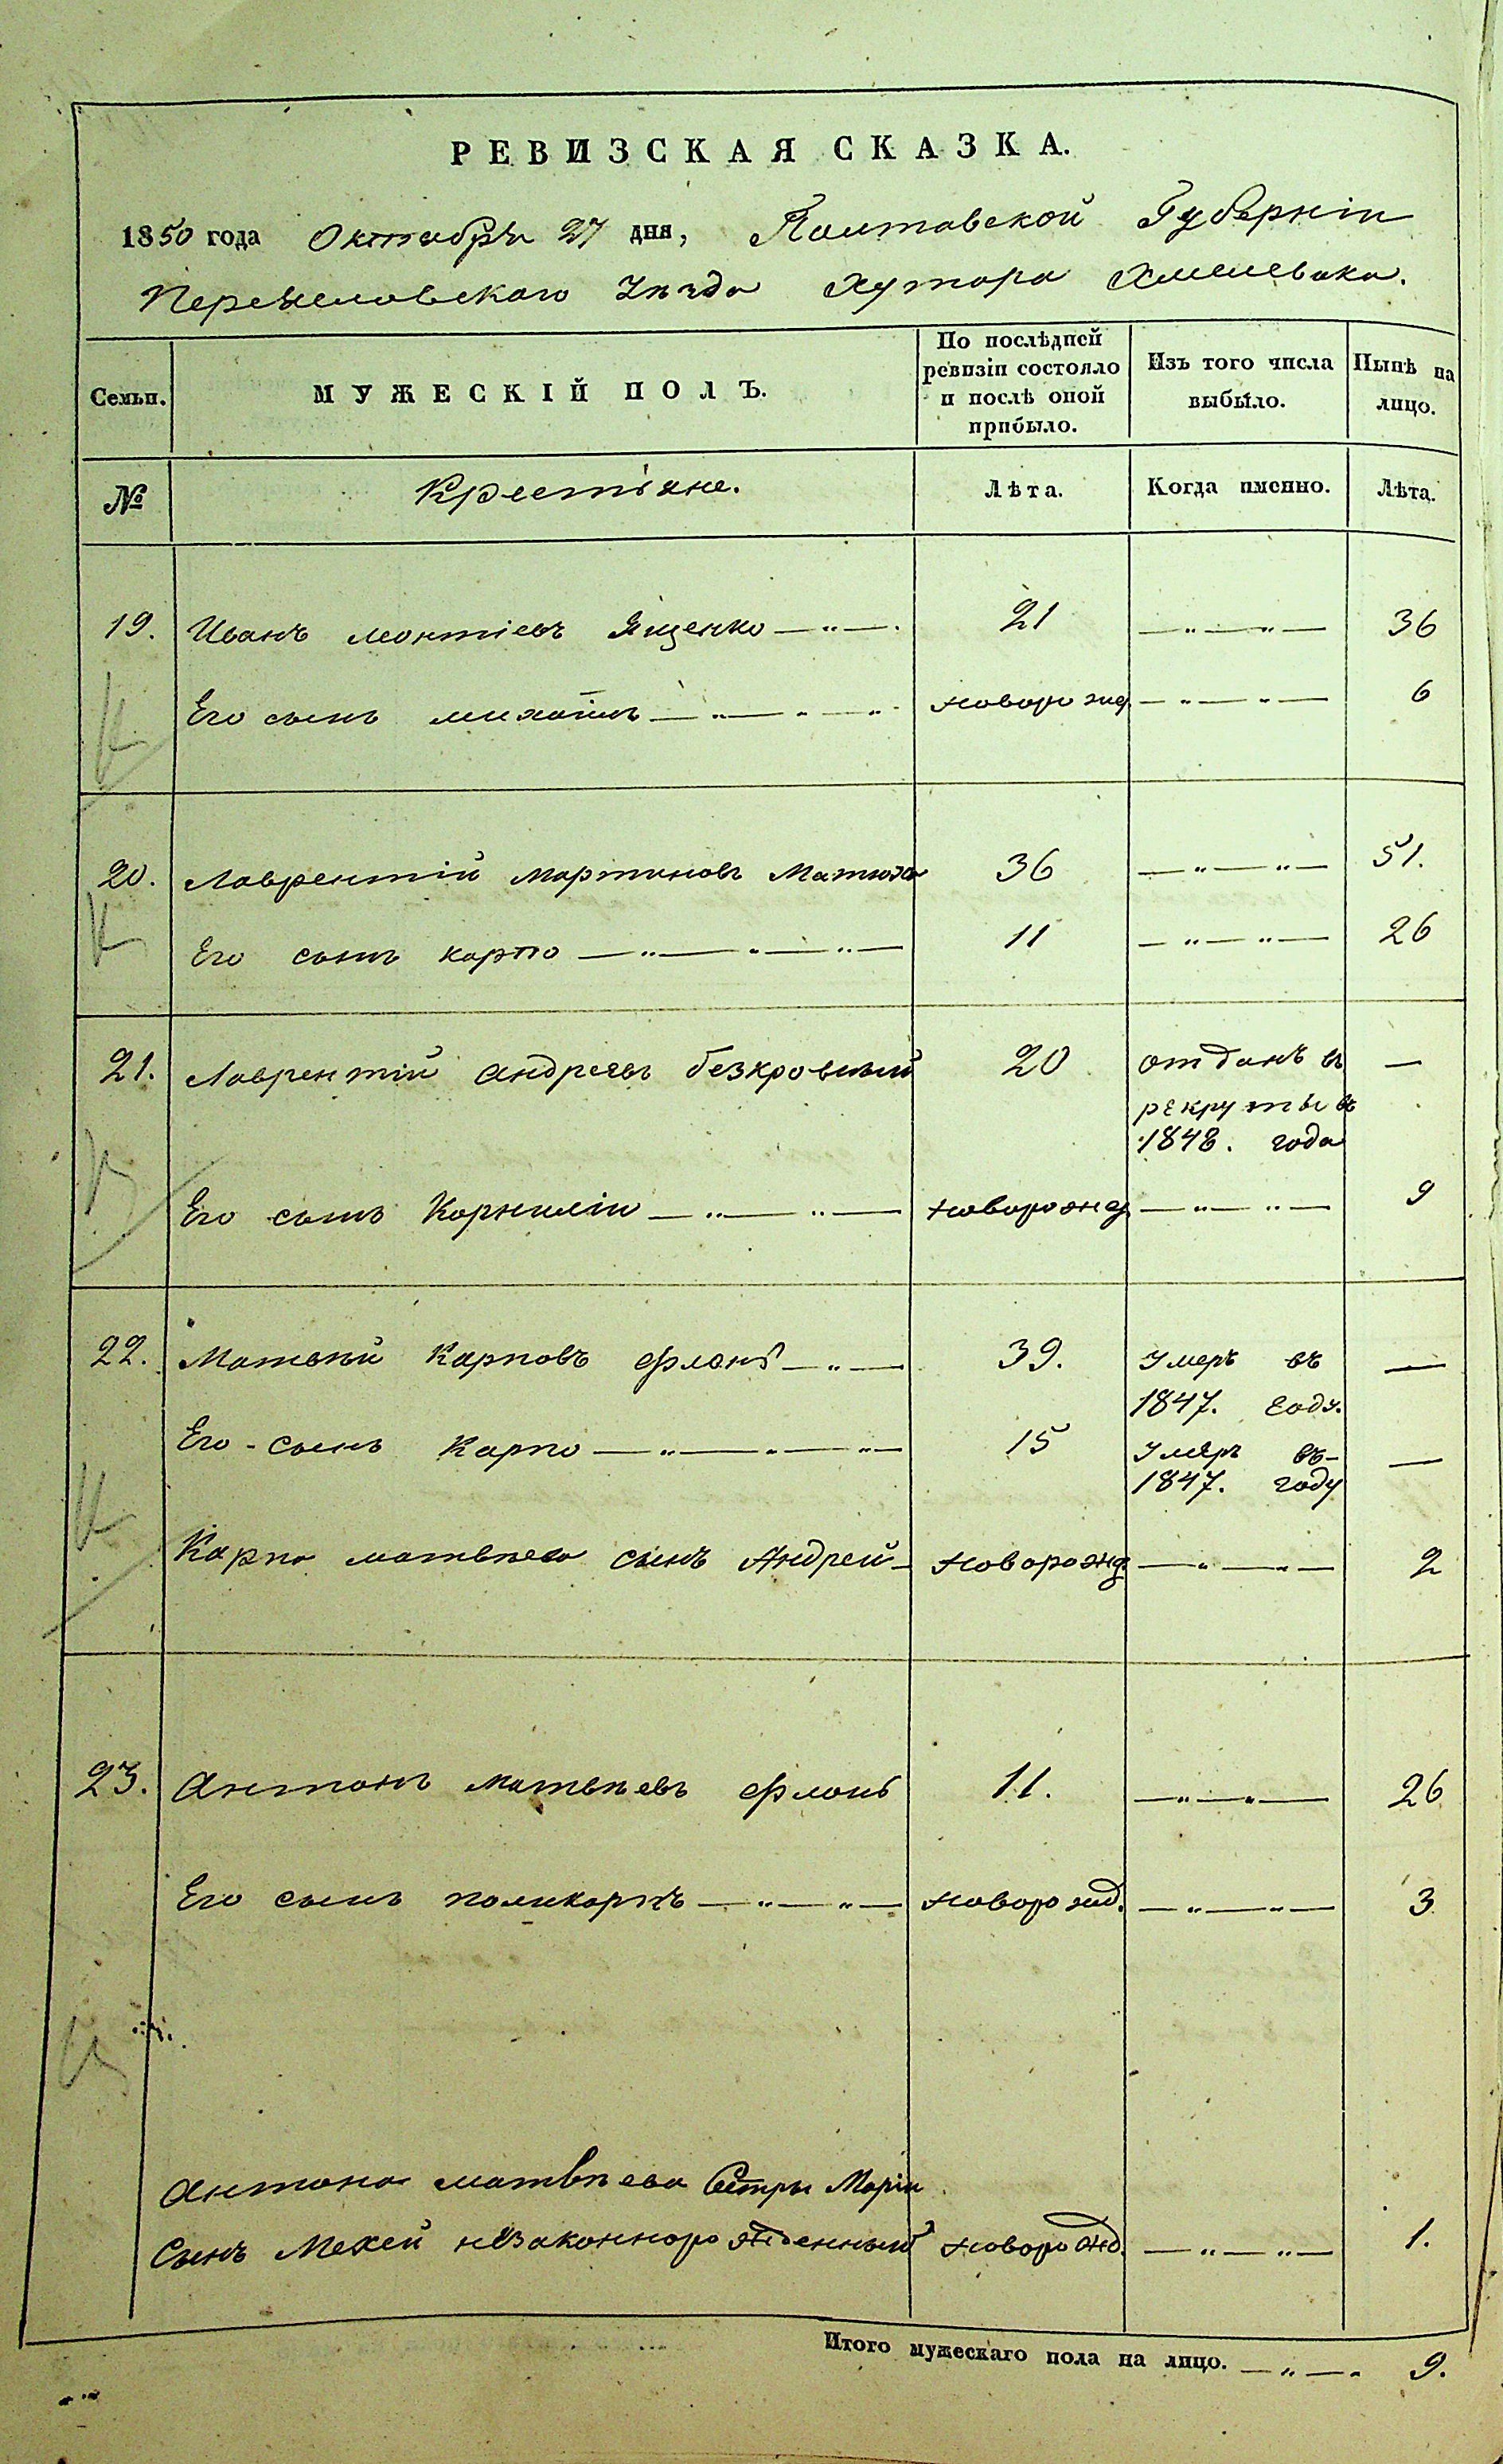 РЕВИЗСКАЯ СКАЗКА.
1850 года Октября 27 дня, Полтавской Губерніи
Переяславскаго Уѣзда Хутора Хмелевака.
Семьи.
МУЖЕСКІЙ ПОЛЪ.
По послѣдней ревизіи состояло и послѣ оной прибыло.
Изъ того числа выбыло.
Нынѣ на лицо.
№ Крестьяне. Лѣта. Когда именно. Лѣта.
19. Иванъ Леонтіевъ Ященко — „ — . 21 — „ — „ — 36
Его сынъ Михаилъ — „ — „ — „ новорожд. — „ — „ — 6
20. Лаврентій Мартиновъ Матюха 36 — „ — „ — 51.
Его сынъ Карпо — „ — „ — „ — 11 — „ — „ — 26
21. Лаврентій Андреевъ Безкровный 20 отданъ въ —
рекруты въ
1848. года
Его сынъ Корнилій — „ — „ — новорожд. — „ — „ — 9
22. Матвѣй Карповъ Филонъ — „ — 39. Умеръ въ —
1847. году.
Его сынъ Карпо — „ — „ — „ — 15 Умеръ въ —
1847. году
Карпа Матвѣева сынъ Андрей — новорожд. — „ — „ — 2
23. Антонъ Матвѣевъ Филонъ 11. — „ — „ — 26
Его сынъ Поликарпъ — „ — „ — новорожд. — „ — „ — 3
Антона Матвѣева Сестры Маріи
Сынъ Мокей незаконнорожденный новорожд. — „ — „ — 1.
Итого мужескаго пола на лицо. — „ — „ 9.